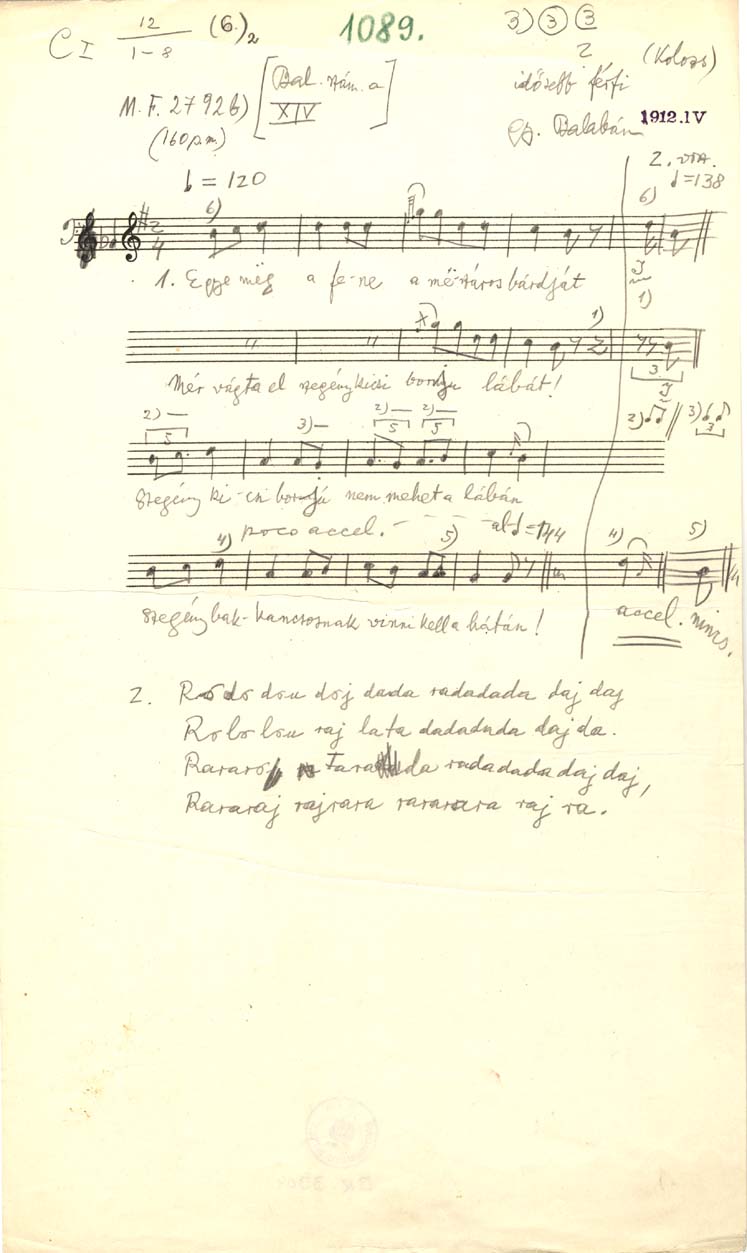 C I 12/1–8 (6.)2 1089. 3) ③ ③
2 (Kolozs)
M.F. 2792b) [Bal. szám. a XIV] idősebb férfi
(160 p.m.) Gy. Balabán 1912.IV
2. vsz.
♩ = 120 ♩=138
6) 6)
2/4
1. Egye mëg a fe-ne a mészáros bárdját
1) 1)
3
Mér vágta el szegény kicsi borju lábát!
2) — 3) — 2) — 2) — 2) 3)
5 5 5 3
Szegény ki-csi borjú nem mehet a lábán
poco accel. - - - - al ♩=144
4) 5) 4) 5)
szegény bak-kancsosnak vinni kell a hátán!
accel. nincs.
2. Rododou doj dada radadada daj daj
Rolo lou raj lata dadadada daj da.
Raroroj tarada radadada daj daj,
Rararaj rajrara rararara raj ra.